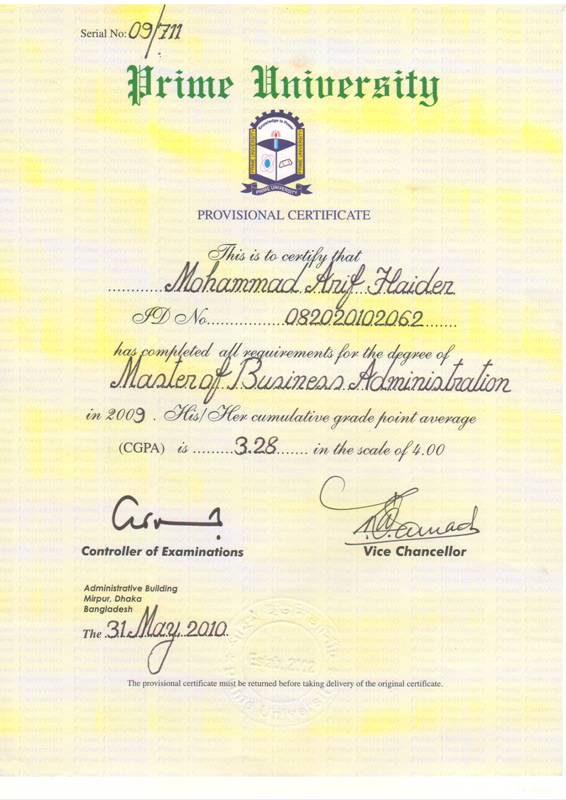 Serial No: 09/711
Prime University
Knowledge is Power
PRIME UNIVERSITY
PRIME UNIVERSITY
PRIME UNIVERSITY
PROVISIONAL CERTIFICATE
This is to certify that
............Mohammad Arif Haider
ID No..................082020102062........
has completed all requirements for the degree of
Master of Business Administration
in 2009 . His/Her cumulative grade point average
(CGPA) is .........3.28....... in the scale of 4.00
Controller of Examinations
Vice Chancellor
Administrative Building
Mirpur, Dhaka
Bangladesh
The 31 May 2010
Estd. 2002
The provisional certificate must be returned before taking delivery of the original certificate.